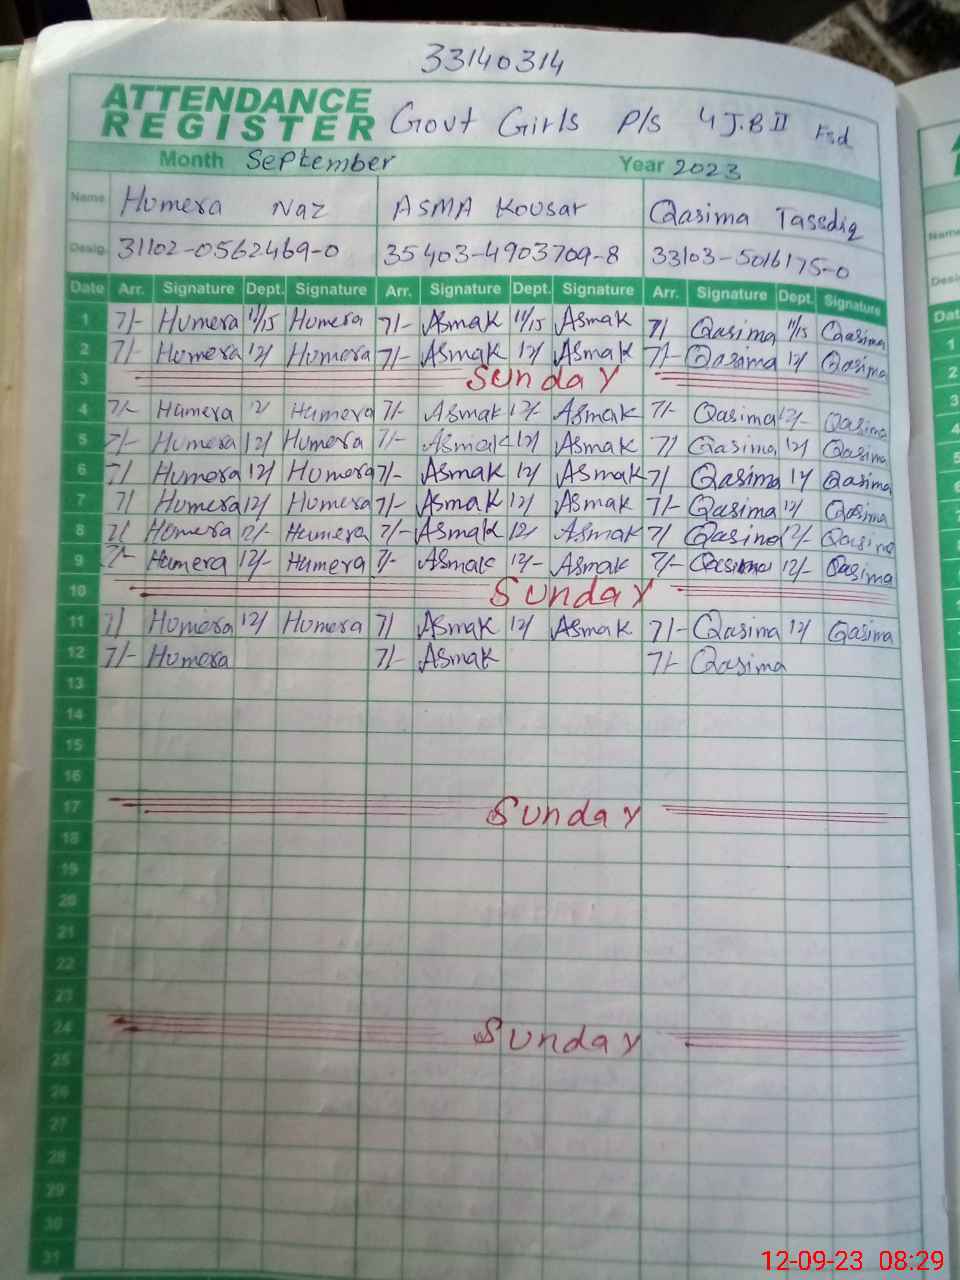 33140314
ATTENDANCE REGISTER Govt Girls P/S 4 J.B II Fsd
Month September Year 2023
Name Humera Naz ASMA Kousar Qasima Tassdiq
Desig. 31102-0562469-0 35403-4903709-8 33103-5016175-0
Date Arr. Signature Dept. Signature Arr. Signature Dept. Signature Arr. Signature Dept. Signature
1 7/- Humera 11/15 Humera 7/- Asmak 11/15 Asmak 7/ Qasima 11/15 Qasima
2 7/- Humera 12/ Humera 7/- Asmak 12/ Asmak 7/- Qasima 12/ Qasima
3 Sunday
4 7/- Humera 12/ Humera 7/- Asmak 12/- Asmak 7/- Qasima 12/- Qasima
5 7/- Humera 12/ Humera 7/- Asmak 12/ Asmak 7/ Qasima 12/ Qasima
6 7/ Humera 12/ Humera 7/- Asmak 12/ Asmak 7/ Qasima 12/ Qasima
7 7/ Humera 12/ Humera 7/- Asmak 12/ Asmak 7/- Qasima 12/ Qasima
8 7/ Humera 12/- Humera 7/- Asmak 12/ Asmak 7/ Qasima 12/- Qasima
9 7/- Humera 12/- Humera 7/- Asmak 12/- Asmak 7/- Qasima 12/- Qasima
10 Sunday
11 7/ Humera 12/ Humera 7/ Asmak 12/ Asmak 7/- Qasima 12/ Qasima
12 7/- Humera 7/- Asmak 7/- Qasima
13
14
15
16
17 Sunday
18
19
20
21
22
23
24 Sunday
25
26
27
28
29
30
31
12-09-23 08:29